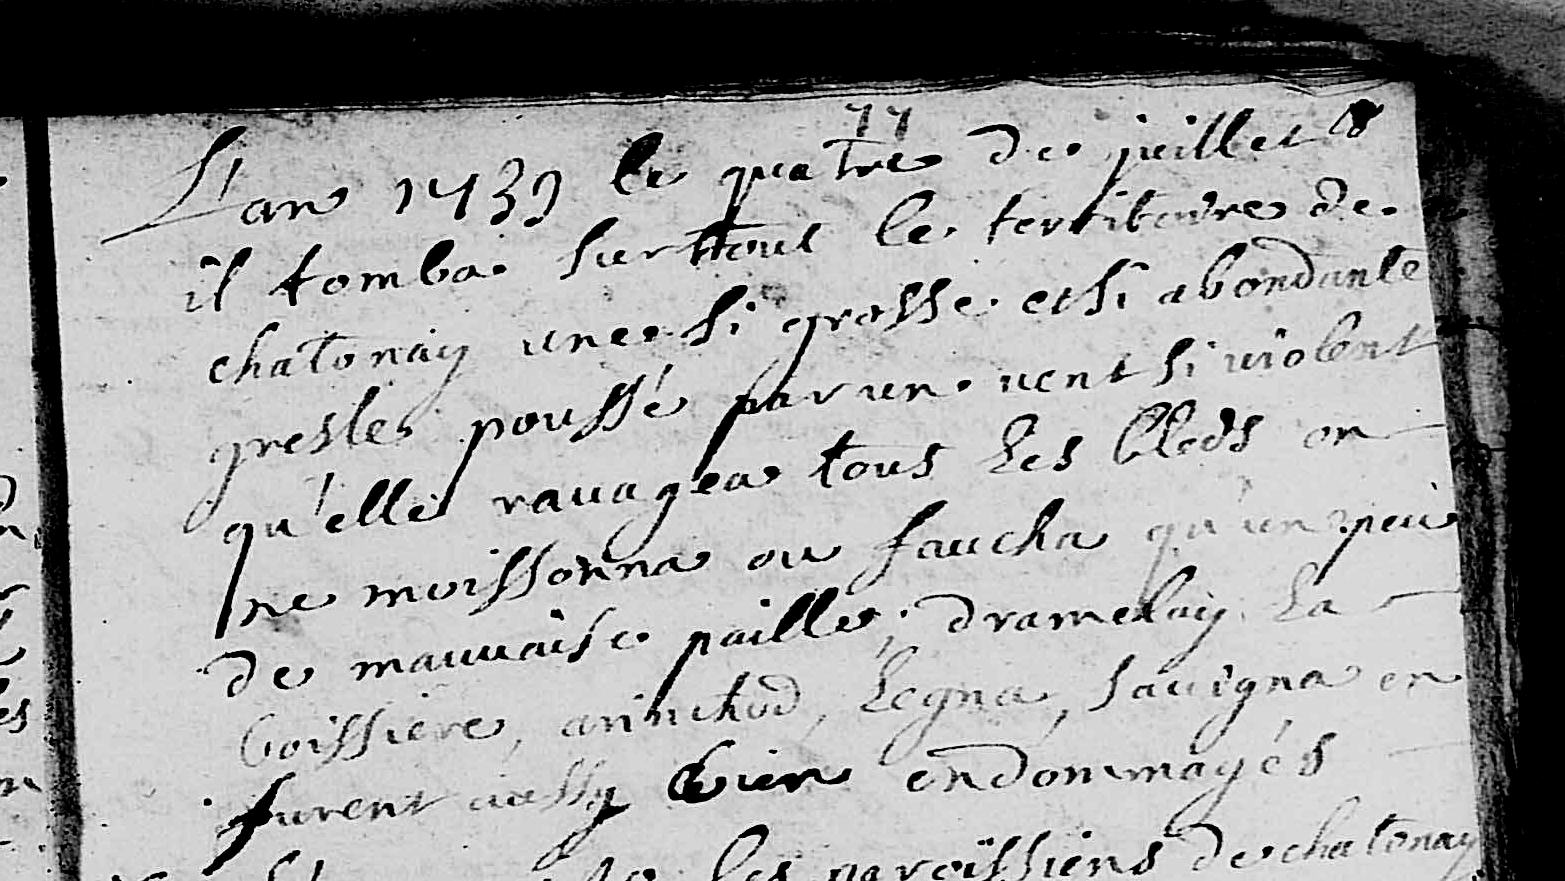 77
L'an 1739 le quatre de juillet
il tomba sur tout le territoire de
chatonay une si grosse et si abondante
gresle poussé par un vent si violent
qu'elle ravagea tous les bleds on
ne moissonna ou faucha qu'un peu
de mauvaise paille; dramelay, La
boissiere, arinthod, Legna, savigna en
furent aussy bien endommagés
les paroissiens de chatonay